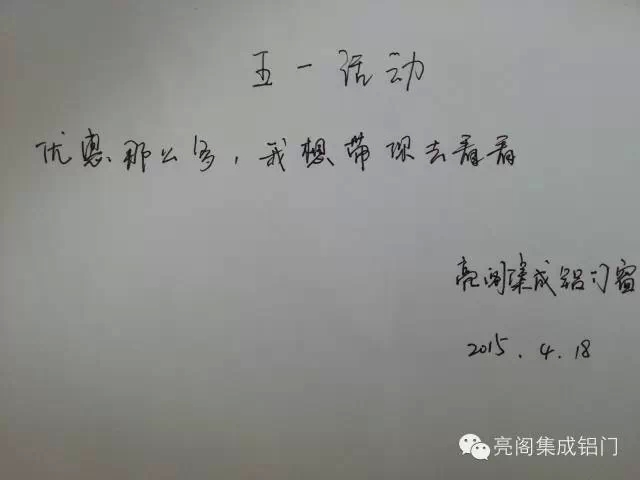 五一活动
优惠那么多，我想带你去看看
亮阁集成铝门窗
2015.4.18
亮阁集成铝门